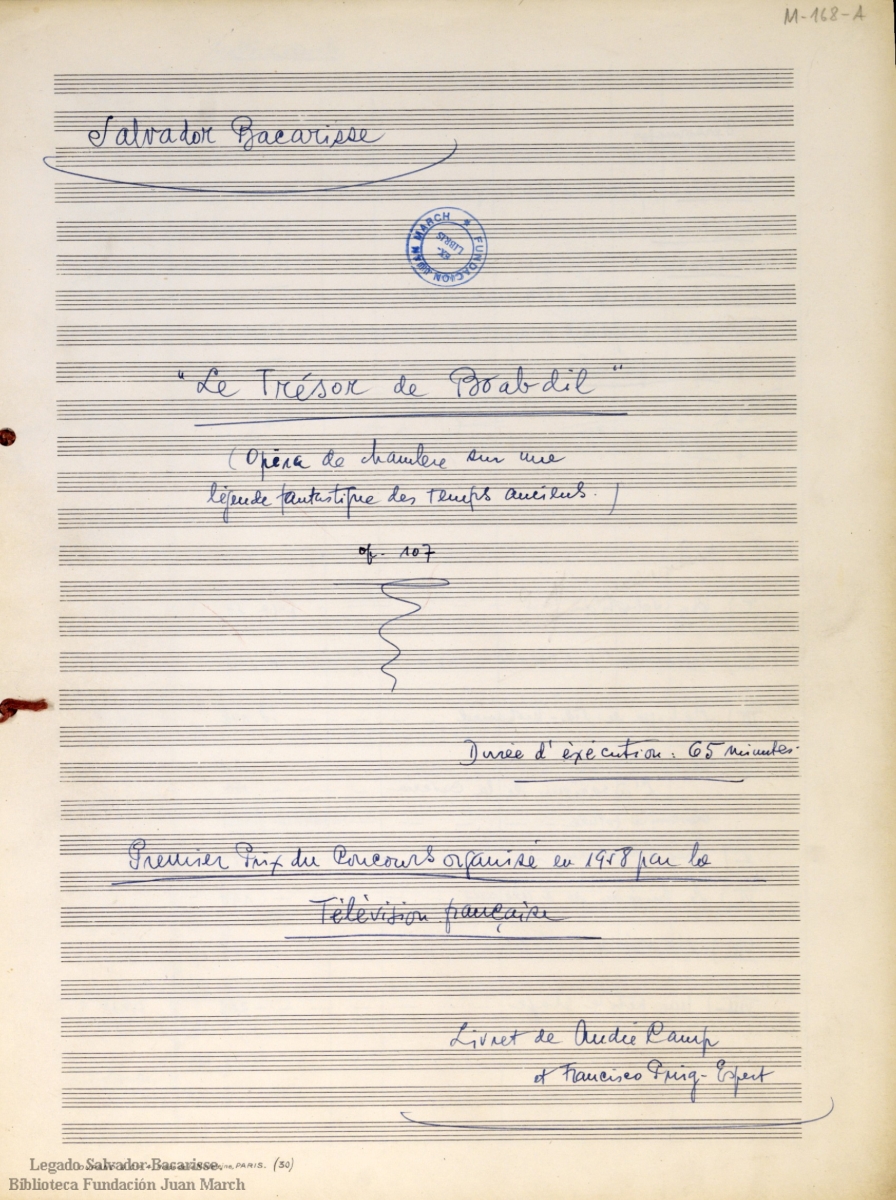 M-168-A
Salvador Bacarisse
FUNDACION JUAN MARCH *
EX-
LIBRIS
"Le Trésor de Boabdil"
(Opéra de chambre sur une
légende fantastique des temps anciens.)
op. 107
Durée d'éxécution: 65 minutes.
Premier Prix du Concours organisé en 1958 par la
Télévision française
Livret de André Camp
et Francisco Puig-Espert
PARIS. (30)
Legado Salvador Bacarisse.
Biblioteca Fundación Juan March